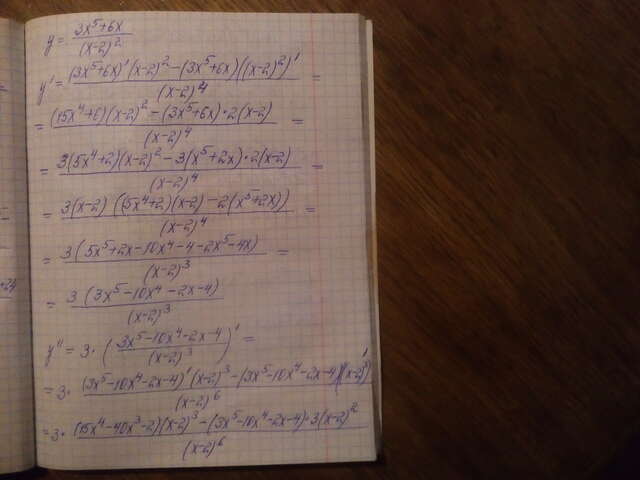 y = (3x⁵+6x)/(x-2)²
y' = ((3x⁵+6x)'(x-2)² - (3x⁵+6x)((x-2)²)')/(x-2)⁴ =
= ((15x⁴+6)(x-2)² - (3x⁵+6x)·2(x-2))/(x-2)⁴ =
= (3(5x⁴+2)(x-2)² - 3(x⁵+2x)·2(x-2))/(x-2)⁴ =
= (3(x-2)((5x⁴+2)(x-2) - 2(x⁵+2x)))/(x-2)⁴ =
= (3(5x⁵+2x-10x⁴-4-2x⁵-4x))/(x-2)³ =
= (3(3x⁵-10x⁴-2x-4))/(x-2)³
y'' = 3·((3x⁵-10x⁴-2x-4)/(x-2)³)' =
= 3·((3x⁵-10x⁴-2x-4)'(x-2)³ - (3x⁵-10x⁴-2x-4)((x-2)³)')/(x-2)⁶
= 3·((15x⁴-40x³-2)(x-2)³ - (3x⁵-10x⁴-2x-4)·3(x-2)²)/(x-2)⁶